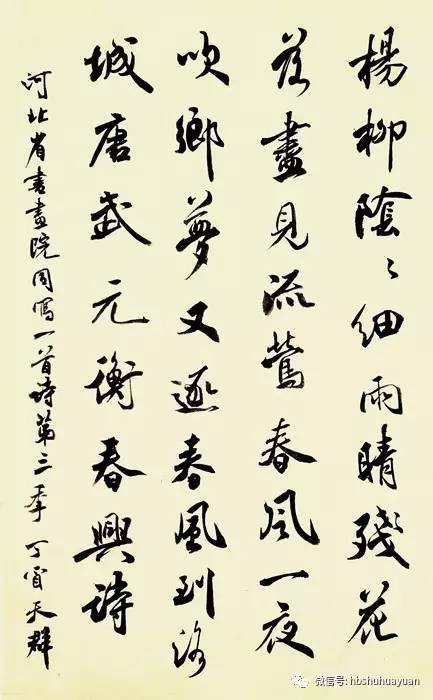 楊柳陰〻細雨晴殘花
落盡見流鶯春風一夜
吹鄉夢又逐春風到洛
城唐武元衡春興詩
河北省書畫院同寫一首詩第三季 丁酉天群
微信号: hbshuhuayuan